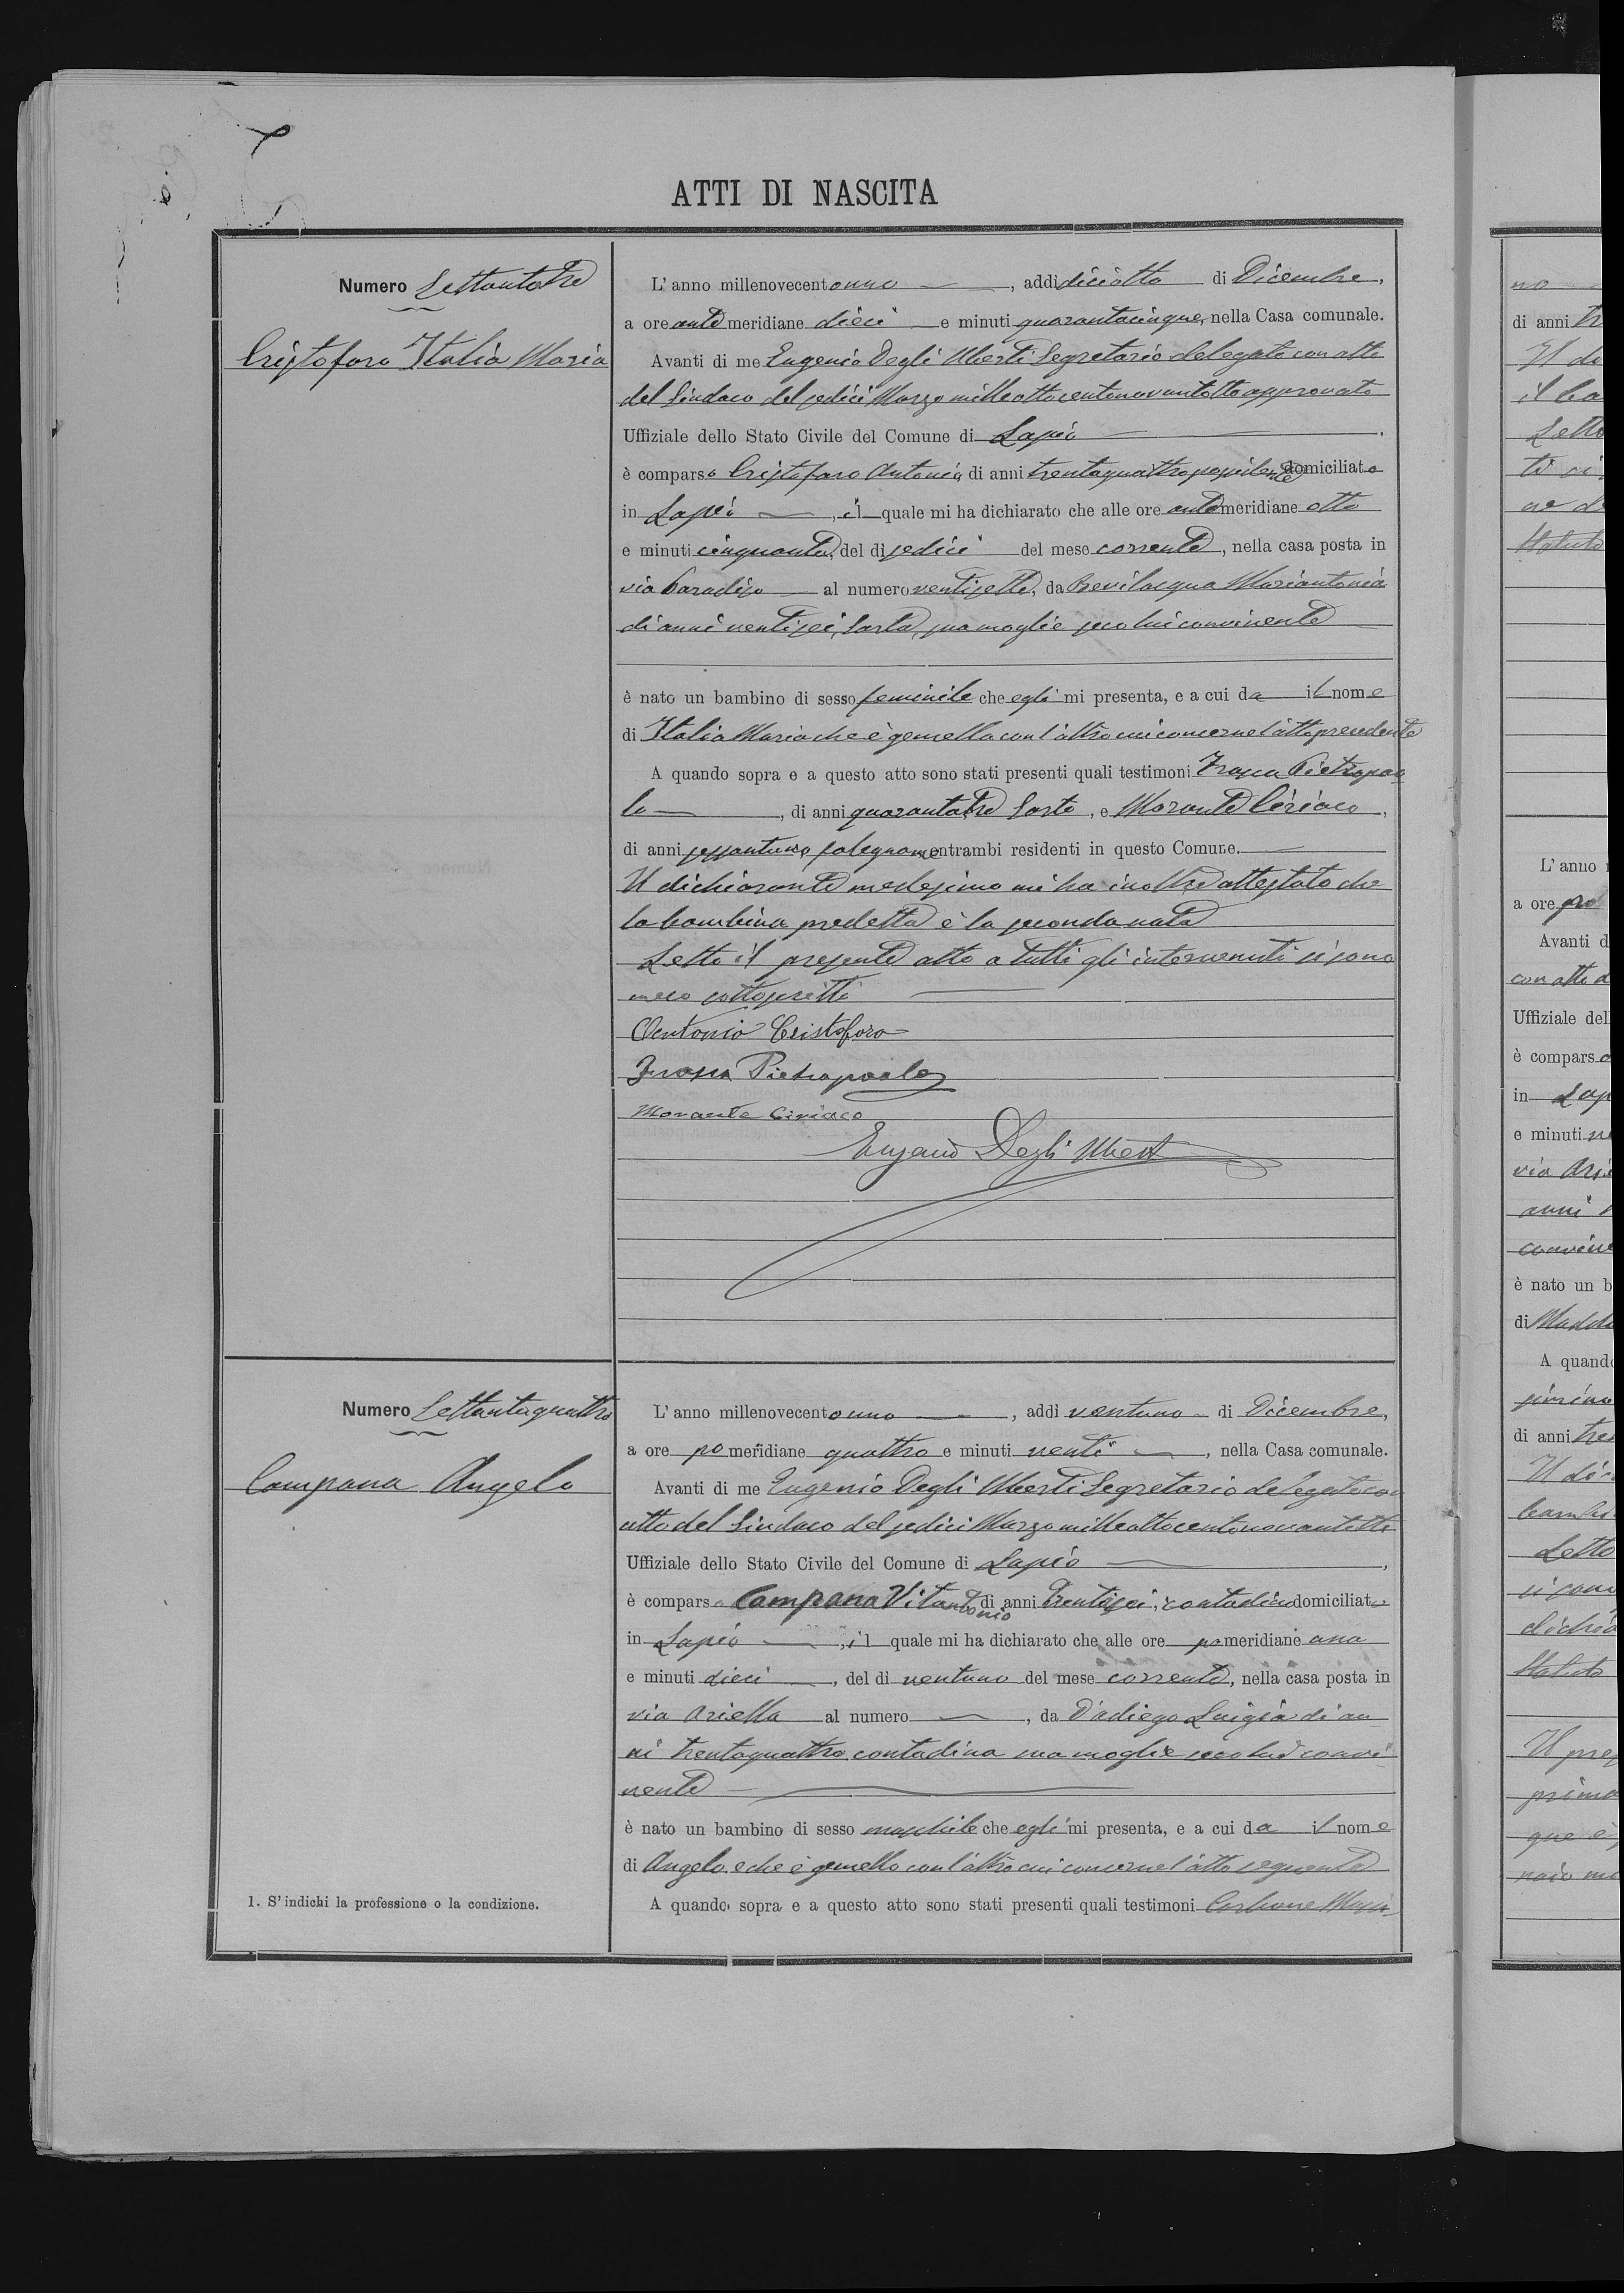 ATTI DI NASCITA
Numero Settantatre
Cristofaro Italia Maria
L'anno millenovecentouno, addi diciotto di Dicembre,
a ore antemeridiane dieci e minuti quarantacinque, nella Casa comunale.
Avanti di me Eugenio Degli Uberti Segretario delegato con atto
del Sindaco del sedici Marzo milleottocentonovantotto approvato
Uffiziale dello Stato Civile del Comune di Lapio,
è comparso Cristofaro Antonio, di anni trentaquattro possidente domiciliato
in Lapio, il quale mi ha dichiarato che alle ore antemeridiane otto
e minuti cinquanta, del di sedici del mese corrente, nella casa posta in
via Paradiso al numero ventisette, da Bevilacqua Mariantonia
di anni ventisei, Sarta, sua moglie seco lui convivente
è nato un bambino di sesso feminile che egli mi presenta, e a cui da il nome
di Italia Maria che è gemella con l'altro cui concerne l'atto precedente
A quando sopra e a questo atto sono stati presenti quali testimoni Trosca Pietropao
lo, di anni quarantatre Sarto, e Morante Ciriaco,
di anni sessantuno, falegname entrambi residenti in questo Comune.
Il dichiarante medesimo mi ha inoltre attestato che
la bambina predetta è la seconda nata
Letto il presente atto a tutti gli intervenuti si sono
meco sottoscritti
Antonio Cristofaro
Pietropaolo
Morante Ciriaco
Eugenio Degli Uberti
Numero Settantaquattro
Campana Angelo
L'anno millenovecentouno, addi ventuno di Dicembre,
a ore pomeridiane quattro e minuti venti, nella Casa comunale.
Avanti di me Eugenio Degli Uberti Segretario delegato con
atto del Sindaco del sedici Marzo milleottocentonovantotto
Uffiziale dello Stato Civile del Comune di Lapio,
è comparso Campana Vitantonio di anni trentasei, contadino domiciliato
in Lapio, il quale mi ha dichiarato che alle ore pomeridiane una
e minuti dieci, del di ventuno del mese corrente, nella casa posta in
via Ariella al numero, da D'adiego Luigia di an
ni trentaquattro contadina sua moglie seco lui convi
vente
è nato un bambino di sesso maschile che egli mi presenta, e a cui da il nome
di Angelo, e che è gemello con l'altro cui concerne l'atto seguente
A quando sopra e a questo atto sono stati presenti quali testimoni Carbone
1. S'indichi la professione o la condizione.
no
di anni
il
L'anno
a ore
Avanti d
con atto d
Uffiziale del
è comparso
in Lap
e minuti
via Ari
anni
convive
è nato un b
di Madda
A quando
di anni tre
Letto
si sono
dichia
prima